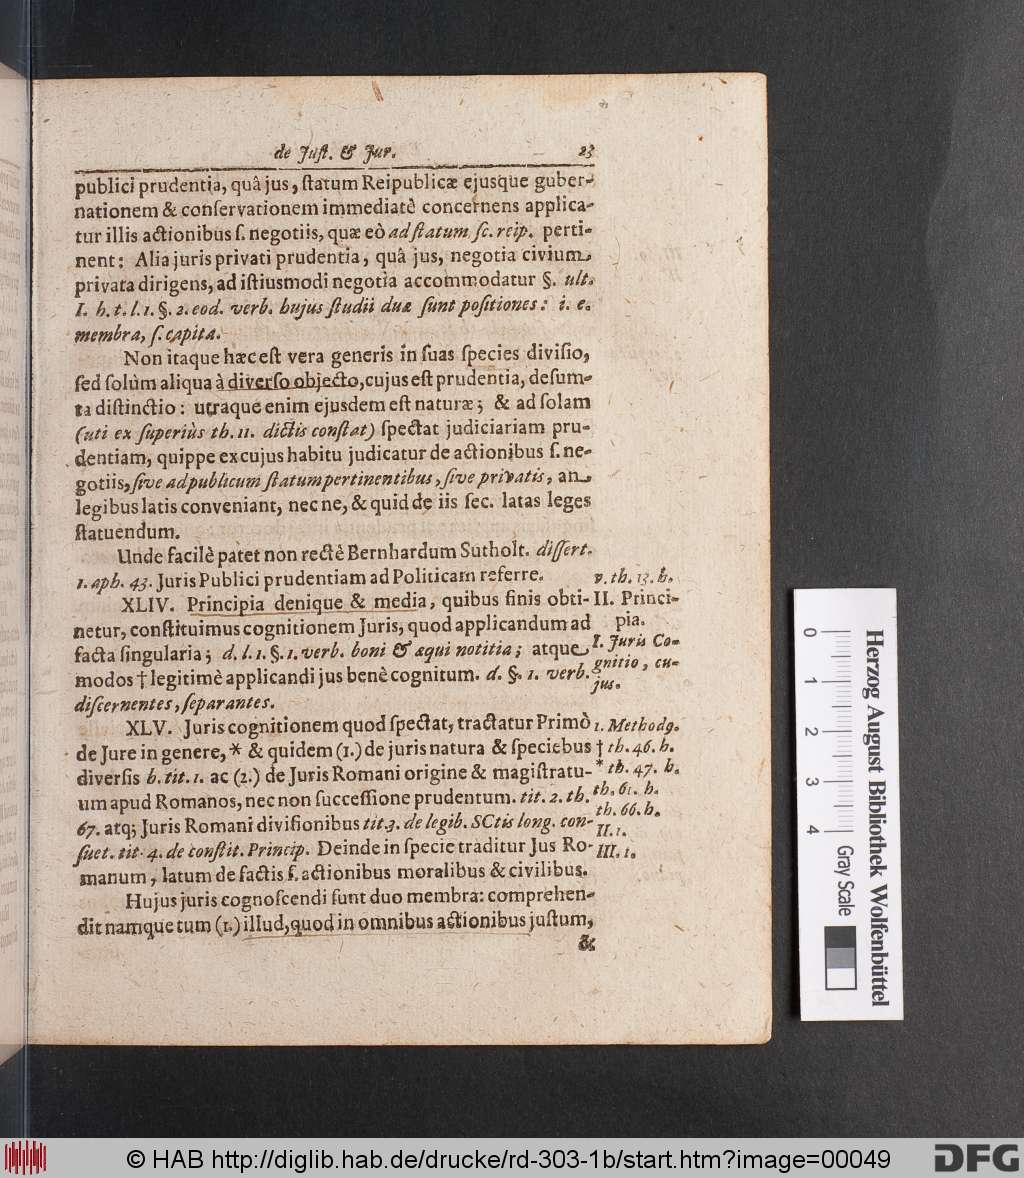 de Juſt. & Jur. 23
publici prudentia, quâ jus, ſtatum Reipublicæ ejusque guber-
nationem & conſervationem immediatè concernens applica-
tur illis actionibus ſ. negotiis, quæ eò ad ſtatum ſc. reip. perti-
nent: Alia juris privati prudentia, quâ jus, negotia civium
privata dirigens, ad iſtiusmodi negotia accommodatur §. ult.
I. h. t. l. 1. §. 2. eod. verb. hujus ſtudii duæ ſunt poſitiones: i. e.
membra, ſ. capita.
Non itaque hæc eſt vera generis in ſuas ſpecies diviſio,
ſed ſolùm aliqua à diverſo objecto, cujus eſt prudentia, deſum-
ta diſtinctio: utraque enim ejusdem eſt naturæ; & ad ſolam
(uti ex ſuperiùs th. 11. dictis conſtat) ſpectat judiciariam pru-
dentiam, quippe ex cujus habitu judicatur de actionibus ſ. ne-
gotiis, ſive ad publicum ſtatum pertinentibus, ſive privatis, an
legibus latis conveniant, nec ne, & quid de iis ſec. latas leges
ſtatuendum.
Unde facilè patet non rectè Bernhardum Sutholt. diſſert.
1. aph. 43. Juris Publici prudentiam ad Politicam referre.
v. th. 13. h.
XLIV. Principia denique & media, quibus finis obti-
netur, conſtituimus cognitionem Juris, quod applicandum ad
facta ſingularia; d. l. 1. §. 1. verb. boni & æqui notitia; atque
modos † legitimè applicandi jus benè cognitum. d. §. 1. verb.
diſcernentes, ſeparantes.
II. Princi-
pia.
I. Juris Co-
gnitio, cu-
jus.
XLV. Juris cognitionem quod ſpectat, tractatur Primò
de Jure in genere, * & quidem (1.) de juris natura & ſpeciebus
diverſis h. tit. 1. ac (2.) de Juris Romani origine & magiſtratu-
um apud Romanos, nec non ſucceſſione prudentum. tit. 2. th.
67. atq; Juris Romani diviſionibus tit. 3. de legib. SCtis long. con-
ſuet. tit. 4. de conſtit. Princip. Deinde in ſpecie traditur Jus Ro-
manum, latum de factis ſ. actionibus moralibus & civilibus.
1. Methodq.
† th. 46. h.
* th. 47. h.
th. 61. h.
th. 66. h.
II. 1.
III. 1.
Hujus juris cognoſcendi ſunt duo membra: comprehen-
dit namque tum (1.) illud, quod in omnibus actionibus juſtum,
&
0 1 2 3 4
Gray Scale
Herzog August Bibliothek Wolfenbüttel
© HAB http://diglib.hab.de/drucke/rd-303-1b/start.htm?image=00049
DFG